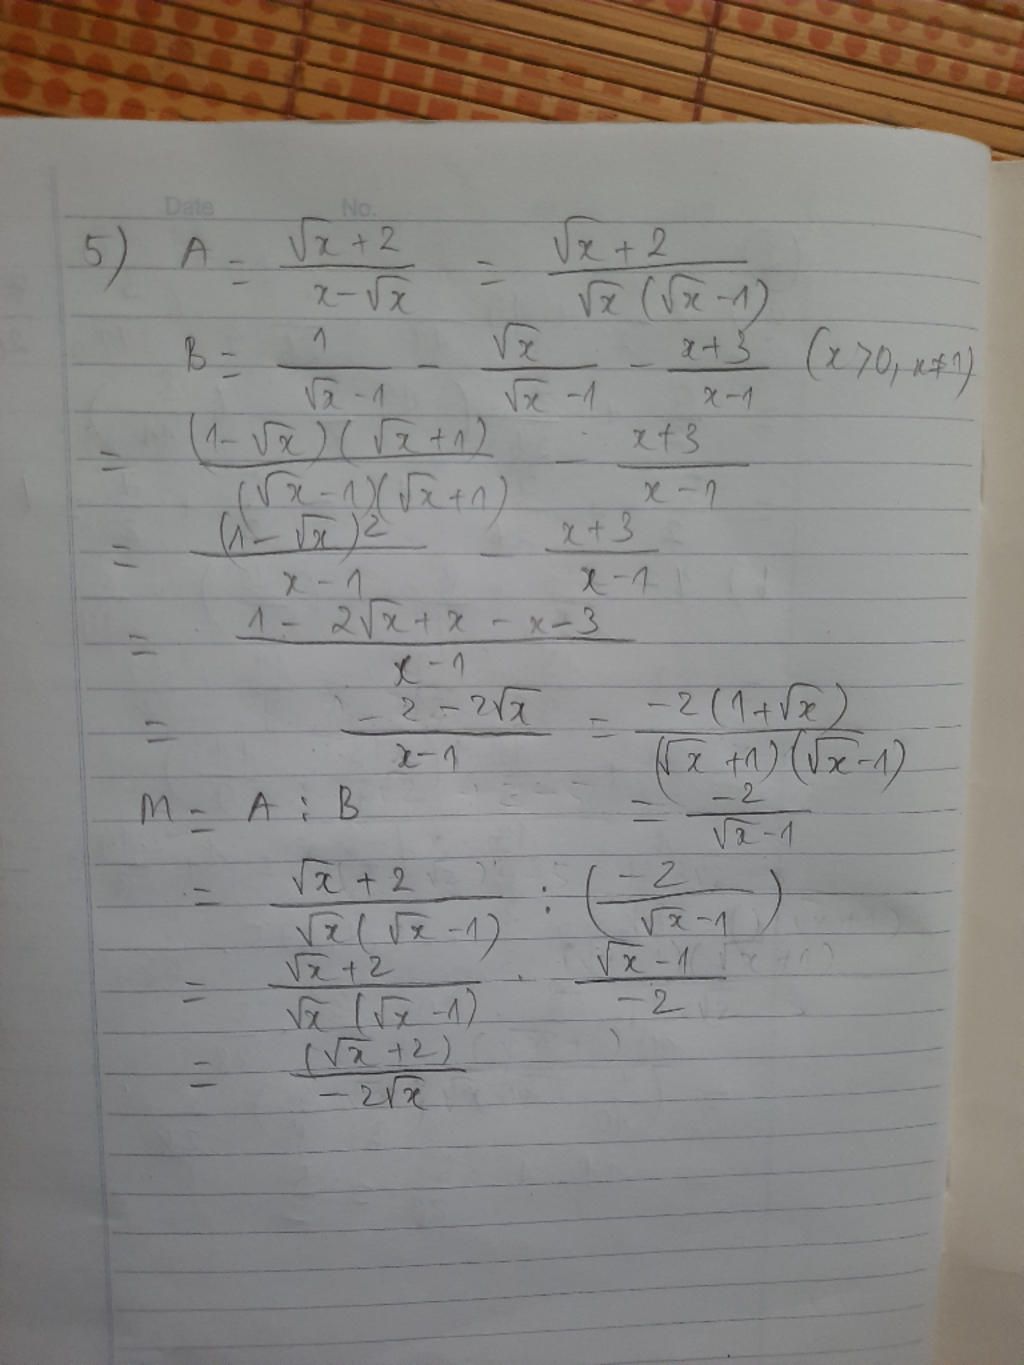 Date No.
5) A = (√x + 2)/(x - √x) = (√x + 2)/(√x (√x - 1))
B = 1/(√x - 1) - √x/(√x - 1) - (x+3)/(x-1) (x>0, x≠1)
= ((1-√x)(√x+1))/((√x-1)(√x+1)) - (x+3)/(x-1)
= (1-√x)²/(x-1) - (x+3)/(x-1)
= (1 - 2√x + x - x - 3)/(x-1)
= (-2 - 2√x)/(x-1) = (-2(1+√x))/((√x+1)(√x-1))
M = A : B = -2/(√x-1)
= (√x + 2)/(√x(√x-1)) : (-2/(√x-1))
= (√x+2)/(√x(√x-1)) . (√x-1)/-2
= (√x+2)/(-2√x)